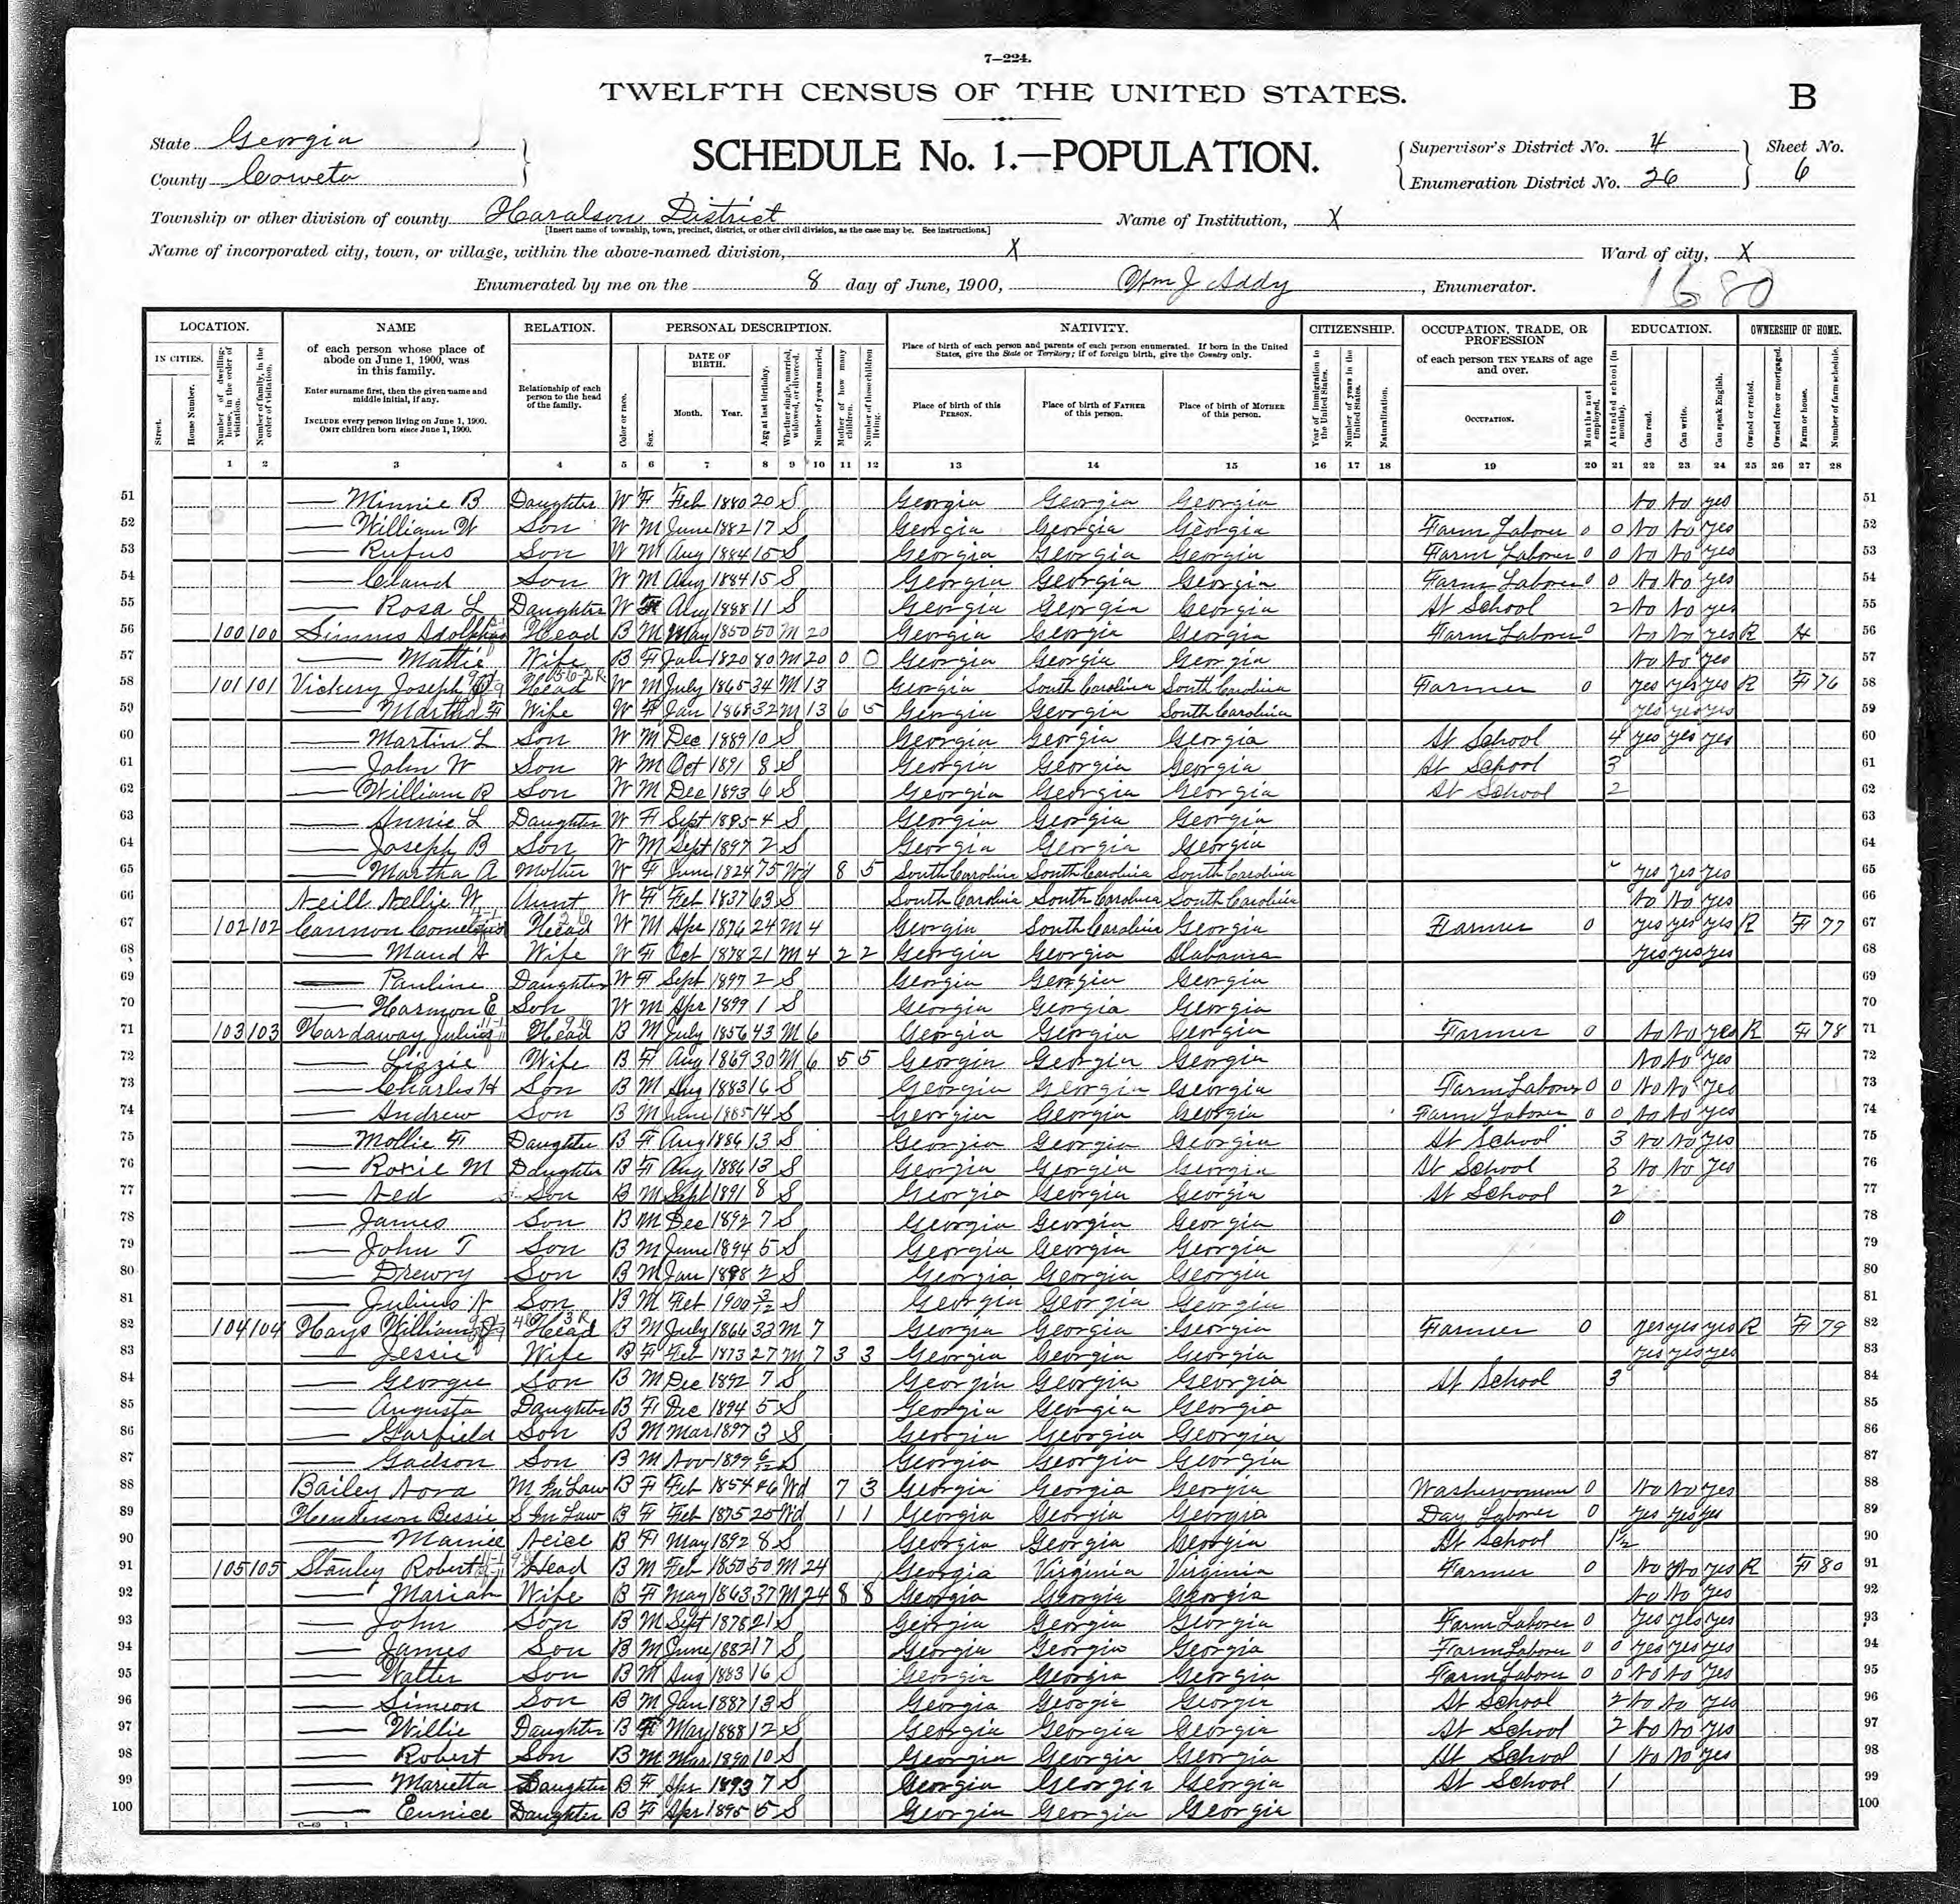 7—224.
TWELFTH CENSUS OF THE UNITED STATES.
B
State Georgia
County Coweta
SCHEDULE No. 1.—POPULATION.
Supervisor's District No. 4
Enumeration District No. 26
Sheet No.
6
Township or other division of county Haralson District
[Insert name of township, town, precinct, district, or other civil division, as the case may be. See instructions.]
Name of Institution, X
Name of incorporated city, town, or village, within the above-named division, X
Ward of city, X
Enumerated by me on the 8 day of June, 1900, Wm J Addy, Enumerator.
1680
LOCATION. NAME RELATION. PERSONAL DESCRIPTION. NATIVITY. CITIZENSHIP. OCCUPATION, TRADE, OR PROFESSION EDUCATION. OWNERSHIP OF HOME.
IN CITIES.
Street.
House Number.
Number of dwelling-house, in the order of visitation.
Number of family, in the order of visitation.
of each person whose place of abode on June 1, 1900, was in this family.
Enter surname first, then the given name and middle initial, if any.
INCLUDE every person living on June 1, 1900.
OMIT children born since June 1, 1900.
Relationship of each person to the head of the family.
Color or race.
Sex.
DATE OF BIRTH.
Month. Year.
Age at last birthday.
Whether single, married, widowed, or divorced.
Number of years married.
Mother of how many children.
Number of these children living.
Place of birth of each person and parents of each person enumerated. If born in the United States, give the State or Territory; if of foreign birth, give the Country only.
Place of birth of this PERSON.
Place of birth of FATHER of this person.
Place of birth of MOTHER of this person.
Year of immigration to the United States.
Number of years in the United States.
Naturalization.
of each person TEN YEARS of age and over.
OCCUPATION.
Months not employed.
Attended school (in months).
Can read.
Can write.
Can speak English.
Owned or rented.
Owned free or mortgaged.
Farm or house.
Number of farm schedule.
1 2 3 4 5 6 7 8 9 10 11 12 13 14 15 16 17 18 19 20 21 22 23 24 25 26 27 28
51 Minnie B Daughter W F Feb 1880 20 S Georgia Georgia Georgia No No yes 51
52 William W Son W M June 1882 17 S Georgia Georgia Georgia Farm Laborer 0 0 No No yes 52
53 Rufus Son W M Aug 1884 15 S Georgia Georgia Georgia Farm Laborer 0 0 No No yes 53
54 Claud Son W M Aug 1884 15 S Georgia Georgia Georgia Farm Laborer 0 0 No No yes 54
55 Rosa L Daughter W F Aug 1888 11 S Georgia Georgia Georgia At School 2 No No yes 55
56 100 100 Simms Head B M May 1850 50 M 20 Georgia Georgia Georgia Farm Laborer 0 No No yes R H 56
57 Mattie Wife B F 1820 80 M 20 0 0 Georgia Georgia Georgia No No yes 57
58 101 101 Vickery Joseph Head W M July 1865 34 M 13 Georgia South Carolina South Carolina Farmer 0 yes yes yes R F 76 58
59 Martha F Wife W F Jan 1868 32 M 13 6 5 Georgia Georgia South Carolina yes yes yes 59
60 Martin L Son W M Dec 1889 10 S Georgia Georgia Georgia At School 4 yes yes yes 60
61 John W Son W M Oct 1891 8 S Georgia Georgia Georgia At School 3 61
62 William R Son W M Dec 1893 6 S Georgia Georgia Georgia At School 2 62
63 Annie L Daughter W F Sept 1895 4 S Georgia Georgia Georgia 63
64 Joseph B Son W M Sept 1897 2 S Georgia Georgia Georgia 64
65 Martha A Mother W F June 1824 75 Wd 8 5 South Carolina South Carolina South Carolina yes yes yes 65
66 Neill Nellie W Aunt W F Feb 1837 63 S South Carolina South Carolina South Carolina No No yes 66
67 102 102 Cannon Head W M Apr 1876 24 M 4 Georgia South Carolina Georgia Farmer 0 yes yes yes R F 77 67
68 Maud A Wife W F Oct 1878 21 M 4 2 2 Georgia Georgia Alabama yes yes yes 68
69 Pauline Daughter W F Sept 1897 2 S Georgia Georgia Georgia 69
70 Harmon E Son W M Apr 1899 1 S Georgia Georgia Georgia 70
71 103 103 Hardaway Julius Head B M July 1856 43 M 6 Georgia Georgia Georgia Farmer 0 No No yes R F 78 71
72 Lizzie Wife B F Aug 1869 30 M 6 5 5 Georgia Georgia Georgia No No yes 72
73 Charles H Son B M Aug 1883 16 S Georgia Georgia Georgia Farm Laborer 0 0 No No yes 73
74 Andrew Son B M June 1885 14 S Georgia Georgia Georgia Farm Laborer 0 0 No No yes 74
75 Mollie F Daughter B F Aug 1886 13 S Georgia Georgia Georgia At School 3 No No yes 75
76 Roxie M Daughter B F Aug 1886 13 S Georgia Georgia Georgia At School 3 No No yes 76
77 Ned Son B M Sept 1891 8 S Georgia Georgia Georgia At School 2 77
78 James Son B M Dec 1892 7 S Georgia Georgia Georgia 0 78
79 John T Son B M June 1894 5 S Georgia Georgia Georgia 79
80 Drewry Son B M Jan 1898 2 S Georgia Georgia Georgia 80
81 Julius Son B M Feb 1900 3/12 S Georgia Georgia Georgia 81
82 104 104 Hays William Head B M July 1866 33 M 7 Georgia Georgia Georgia Farmer 0 yes yes yes R F 79 82
83 Jessie Wife B F Feb 1873 27 M 7 3 3 Georgia Georgia Georgia yes yes yes 83
84 Georgie Son B M Dec 1892 7 S Georgia Georgia Georgia At School 3 84
85 Augusta Daughter B F Dec 1894 5 S Georgia Georgia Georgia 85
86 Garfield Son B M Mar 1897 3 S Georgia Georgia Georgia 86
87 Gadson Son B M Nov 1899 6/12 S Georgia Georgia Georgia 87
88 Bailey Nora M In Law B F Feb 1854 46 Wd 7 3 Georgia Georgia Georgia Washerwoman 0 No No yes 88
89 Henderson Bessie S In Law B F Feb 1875 25 Wd 1 1 Georgia Georgia Georgia Day Laborer 0 yes yes yes 89
90 Mamie Neice B F May 1892 8 S Georgia Georgia Georgia At School 1½ 90
91 105 105 Stanley Robert Head B M Feb 1850 50 M 24 Georgia Virginia Virginia Farmer 0 No No yes R F 80 91
92 Mariah Wife B F May 1863 37 M 24 8 8 Georgia Georgia Georgia No No yes 92
93 John Son B M Sept 1878 21 S Georgia Georgia Georgia Farm Laborer 0 yes yes yes 93
94 James Son B M June 1882 17 S Georgia Georgia Georgia Farm Laborer 0 0 yes yes yes 94
95 Walter Son B M Aug 1883 16 S Georgia Georgia Georgia Farm Laborer 0 0 No No yes 95
96 Simeon Son B M Jan 1887 13 S Georgia Georgia Georgia At School 2 No No yes 96
97 Willie Daughter B F May 1888 12 S Georgia Georgia Georgia At School 2 No No yes 97
98 Robert Son B M Mar 1890 10 S Georgia Georgia Georgia At School 1 No No yes 98
99 Marietta Daughter B F Apr 1893 7 S Georgia Georgia Georgia At School 1 99
100 Eunice Daughter B F Apr 1895 5 S Georgia Georgia Georgia 100